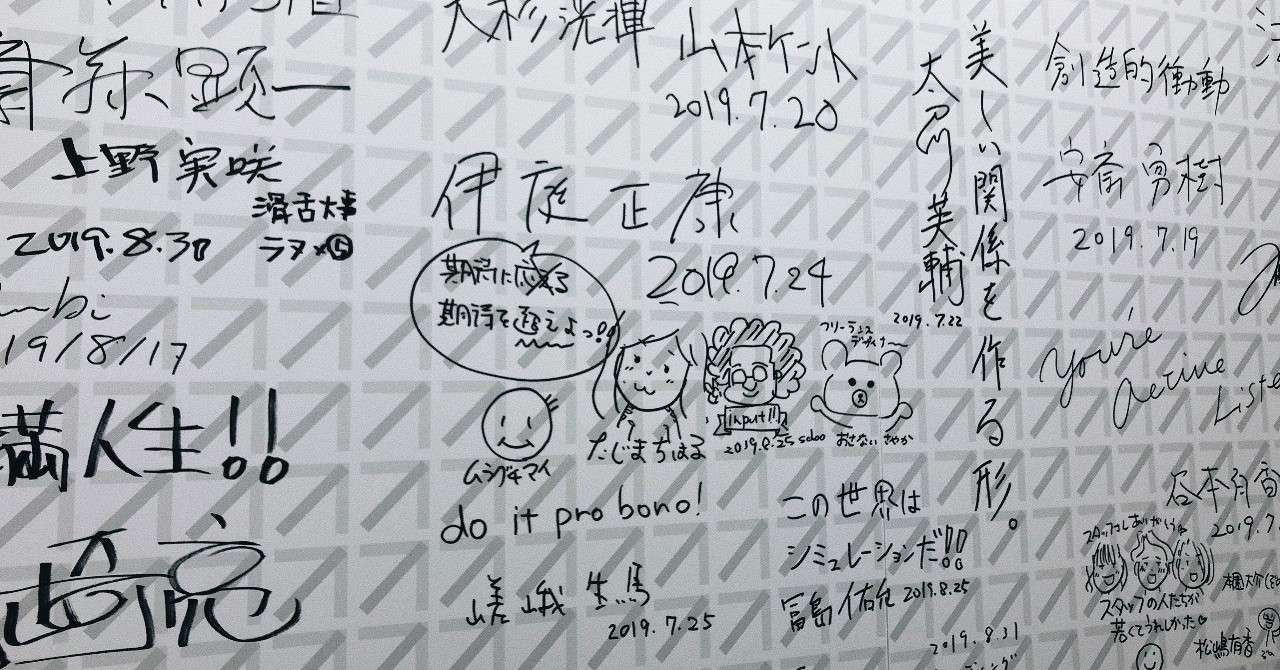 上野実咲
滑舌大事
2019.8.30
19/8/17
満人生!!
大杉洸輝
2019.7.20
伊庭正康
2019.7.24
期待に応える
期待を超えよっ!!
たじまちはる
input!!
2019.8.25 schoo
フリーランス
おさないさやか
do it pro bono!
嵯峨生馬
2019.7.25
美しい関係を作る形。
太刀川英輔
2019.7.22
この世界は
シミュレーションだ!!
冨島佑允 2019.8.25
2019.8.31
創造的衝動
安斎勇樹
2019.7.19
You're
active
スタッフの人たちが
若くてうれしかった
松嶋有香